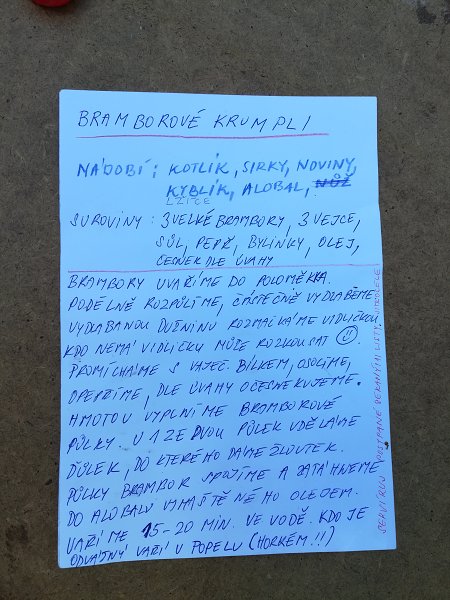 BRAMBOROVÉ KRUMPLI
NÁDOBÍ: KOTLÍK, SIRKY, NOVINY,
KYBLÍK, ALOBAL, NŮŽ
LŽÍCE
SUROVINY: 3 VELKÉ BRAMBORY, 3 VEJCE,
SŮL, PEPŘ, BYLINKY, OLEJ,
ČESNEK DLE ÚVAHY
BRAMBORY UVAŘÍME DO POLOMĚKKA.
PODÉLNĚ ROZPŮLÍME, ČÁSTEČNĚ VYDLABEME.
VYDLABANOU DUŽNINU ROZMAČKÁME VIDLIČKOU
KDO NEMÁ VIDLIČKU MŮŽE ROZKOUSAT
PROMÍCHÁME S VAJEČ. BÍLKEM, OSOLÍME,
OPEPŘÍME, DLE ÚVAHY OČESNEKUJEME.
HMOTOU VYPLNÍME BRAMBOROVÉ
PŮLKY. U 1 ZE DVOU PŮLEK UDĚLÁME
ĎŮLEK, DO KTERÉHO DÁME ŽLOUTEK.
PŮLKY BRAMBOR SPOJÍME A ZATÁHNEME
DO ALOBALU VYMAŠTĚNÉHO OLEJEM.
VAŘÍME 15-20 MIN. VE VODĚ. KDO JE
ODVÁŽNÝ VAŘÍ V POPELU (HORKÉM!!)
SERVÍRUJ POSYPANÉ LISTY